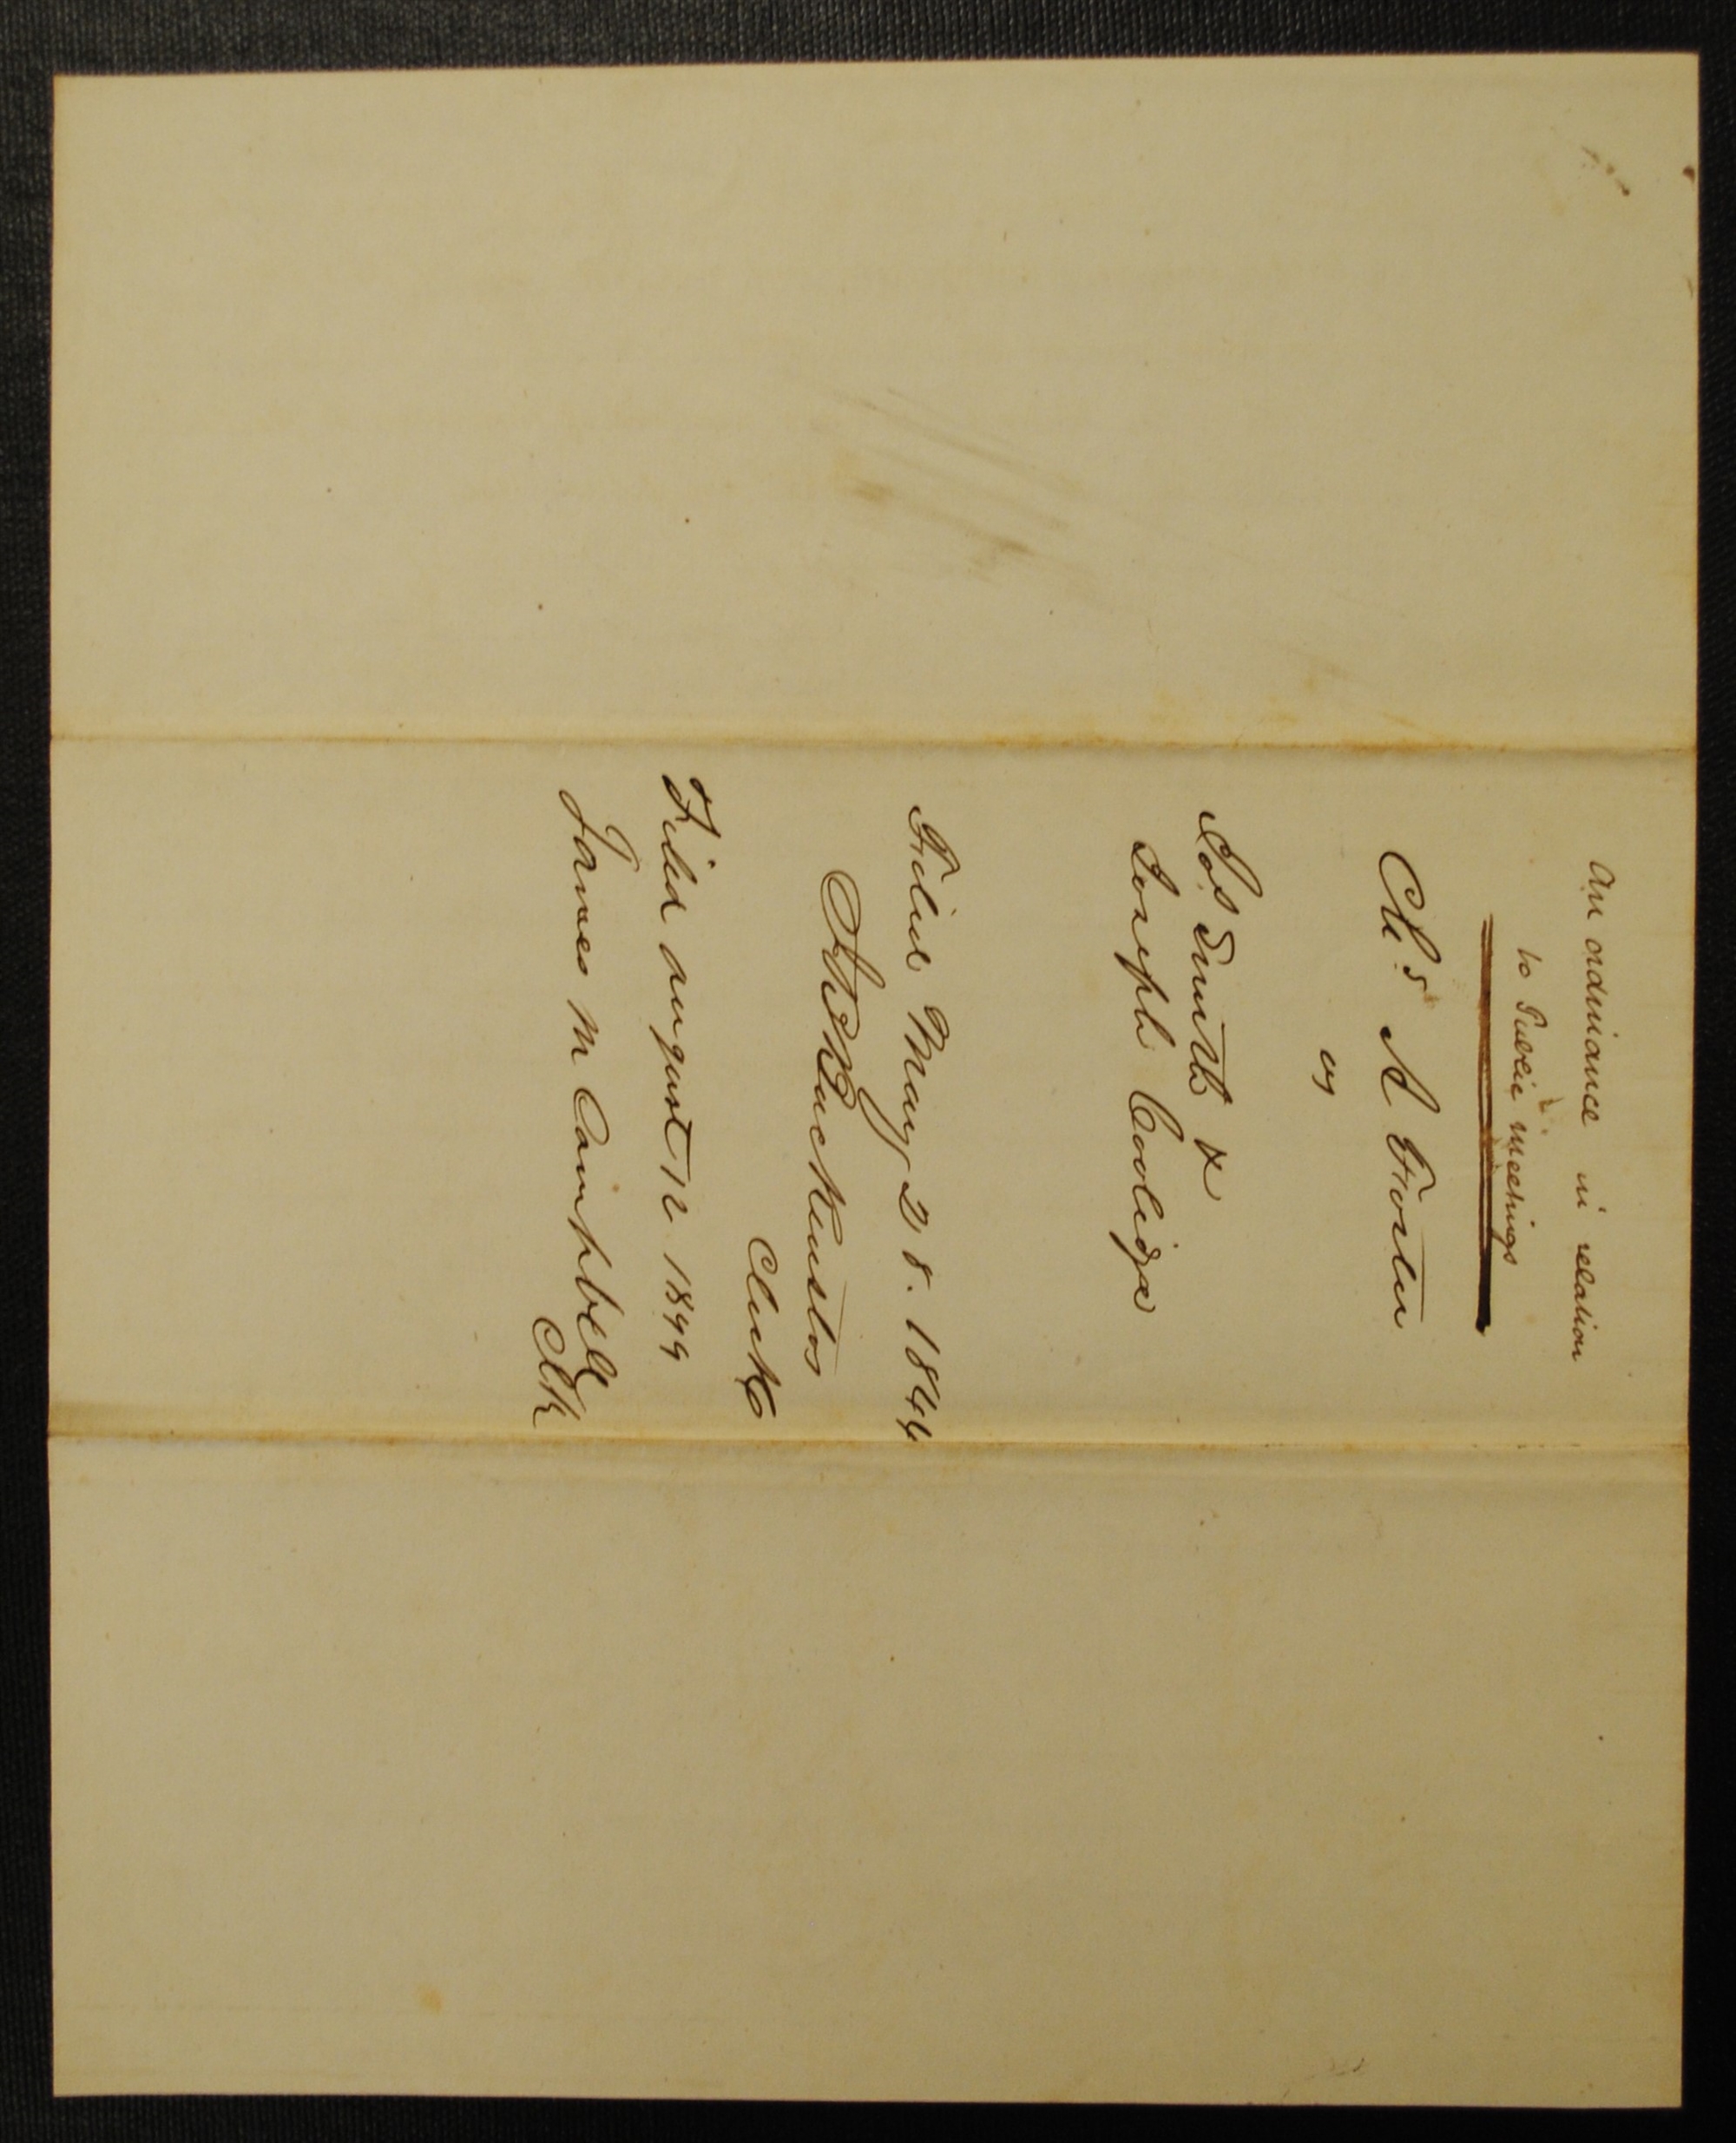 An ordinance in relation
to Public meetings
Chs A Foster
vs
Jos Smith &
Joseph Coolidge
Filed May 28. 1844
J B Backenstos
Clerk
Filed august 12 1844
James M Campbell
Clk